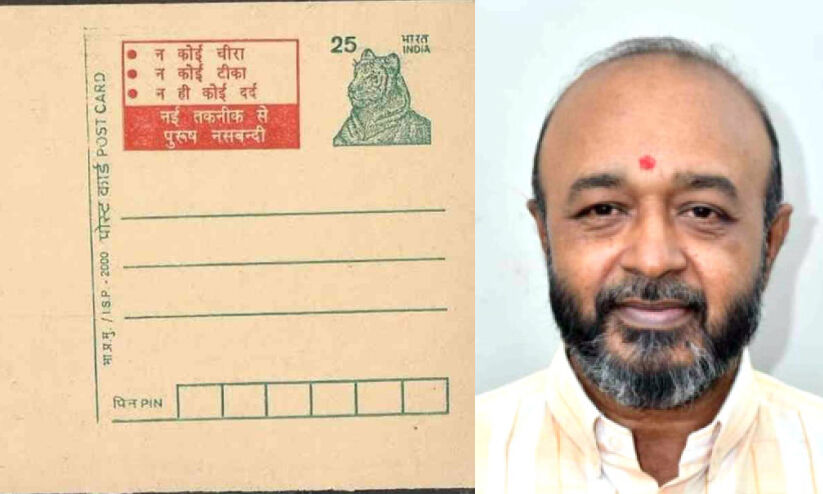 • न कोई चीरा
• न कोई टीका
• न ही कोई दर्द
नई तकनीक से
पुरूष नसबन्दी
25
भारत
INDIA
भा.प्र.मु. / I.S.P. - 2000 पोस्ट कार्ड POST CARD
पिन PIN